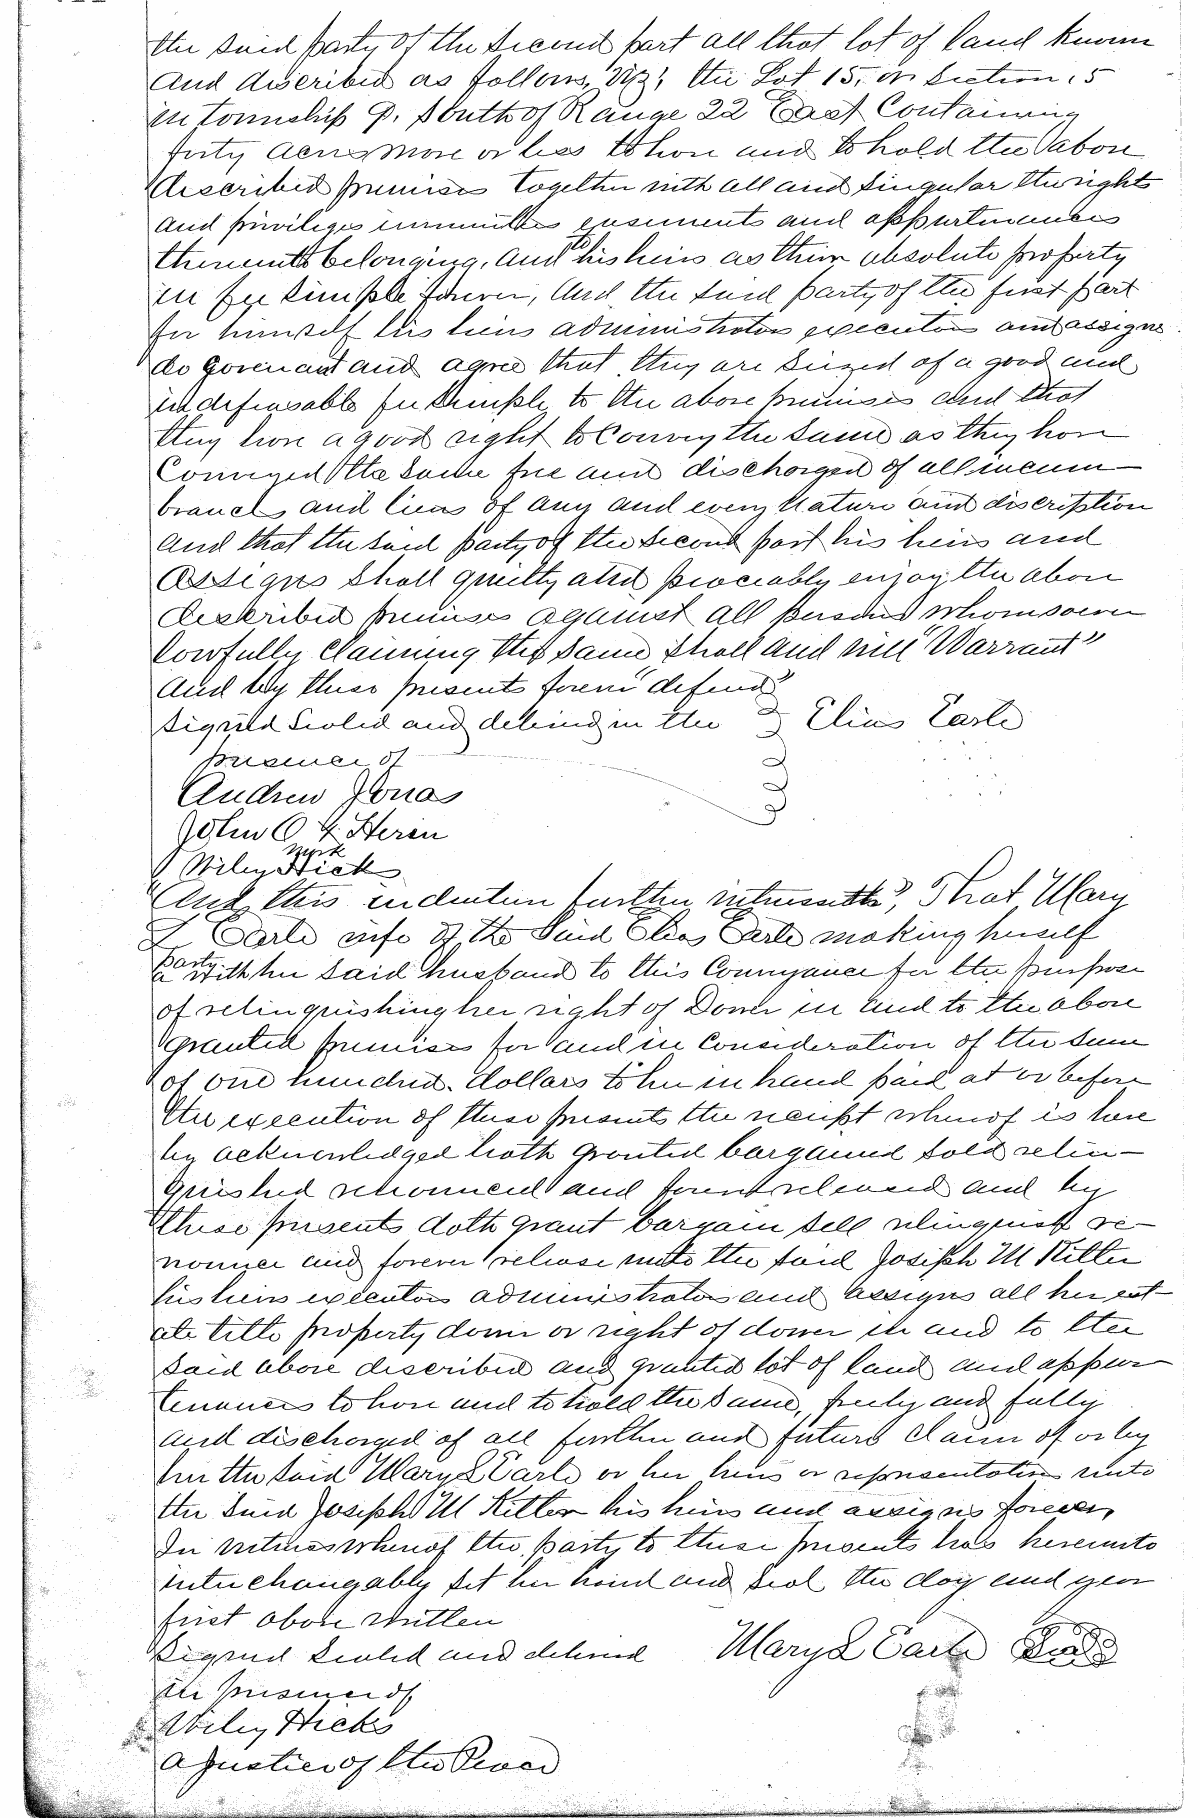 the said party of the Second part all that lot of land known
and discribed as follows, Viz; the Lot 15, on Section 15
in township 9. South of Range 22 East Containing
forty acres more or less to have and to hold the above
discribed premises together with all and Singular the rights
and priviliges immunities easements and appurtenances
thereunto belonging, and to his heirs as their absolute property
in fee Simple forever, And the Said party of the first part
for himself his heirs administrators executors and assigns
do Covenant and agree that they are Siezed of a good and
indefeasable fee Simple to the above premises and that
they have a good right to Convey the Same as they have
Conveyed the Same free and discharged of all incum-
brances and liens of any and every Nature and discription
and that the Said party of the Second part his heirs and
Assigns Shall quietly and peaceably enjoy the above
described premises against all persons whomsoever
lawfully Claiming the Same, Shall and will "Warrant"
and by these presents forever "defend"
Signed Sealed and delivered in the Elias Earle
presence of
Andrew Jonas
John O
Wiley Hicks
"And this indenture further witnesseth", That Mary
L Earle wife of the Said Elias Earle making herself
a party with her Said husband to this Conveyance for the purpose
of relinquishing her right of Dower in and to the above
granted premises for and in Consideration of the Sum
of one hundred. dollars to her in hand paid at or before
the execution of these presents the receipt whereof is here
by acknowledged hath granted bargained Sold relin-
quished renounced and forever released and by
these presents doth grant bargain Sell relinquish re-
nounce and forever release unto the Said Joseph M Ritter
his heirs executors administrators and assigns all her est-
ate title property dower or right of dower in and to the
Said above discribed and granted lot of land and appur-
tenances to have and to hold the Same, freely and fully
and discharged of all further and future Claim of or by
her the Said Mary L Earle or her heirs or representatives unto
the Said Joseph M Ritter his heirs and assigns forever,
In witness whereof the party to these presents has hereunto
interchangably Set her hand and Seal the day and year
first above written
Signed Sealed and delivered Mary L Earle Seal
in presence of
Wiley Hicks
a Justice of the Peace